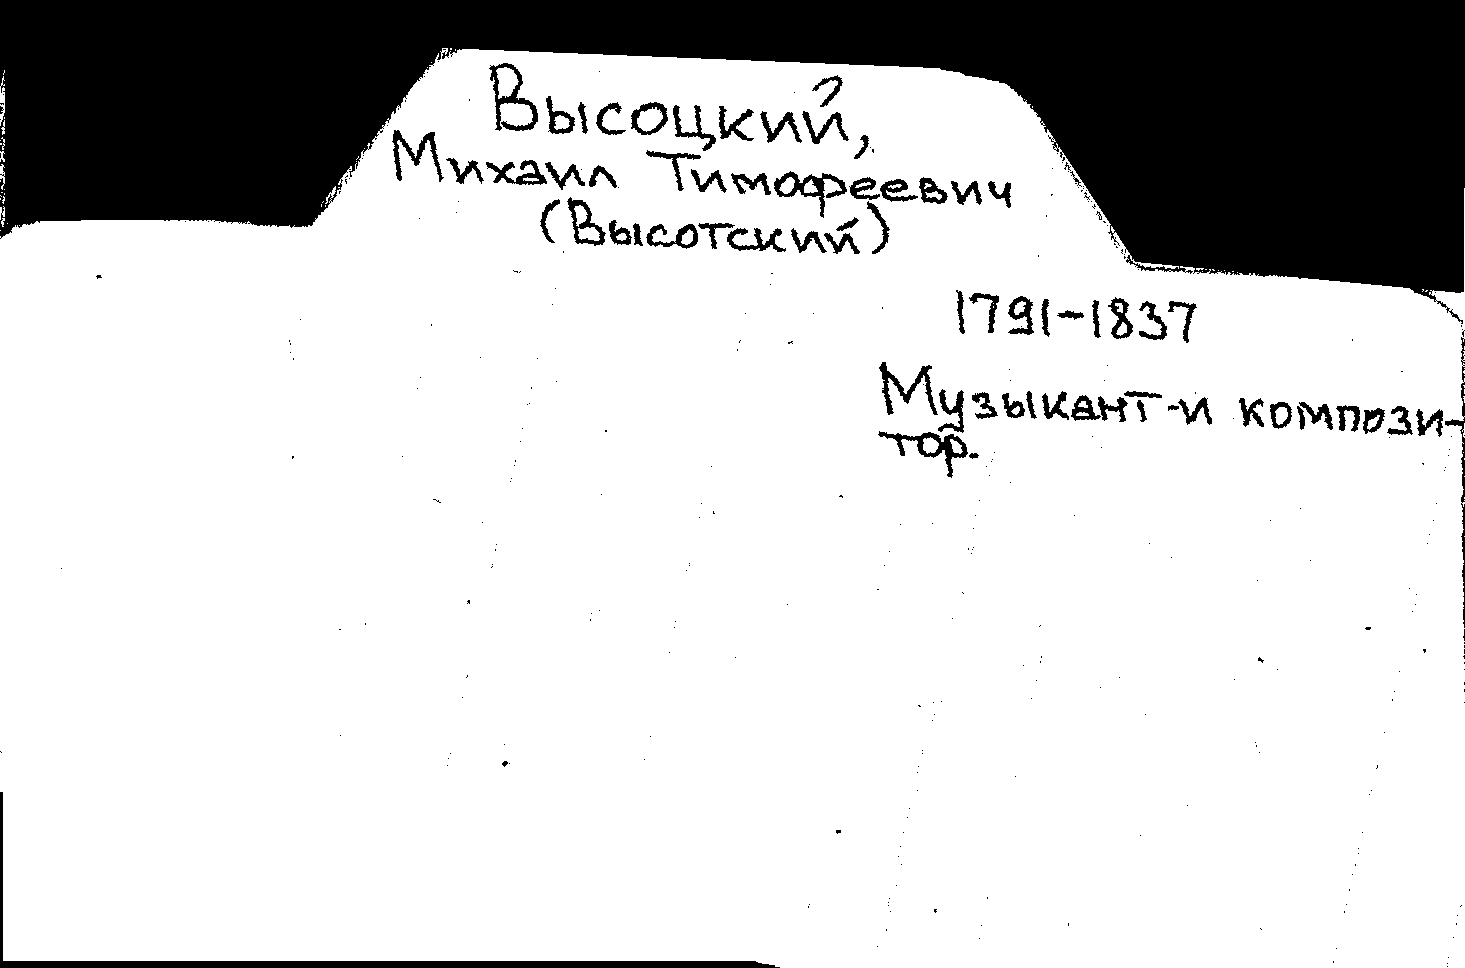 Высоцкий,
Михаил Тимофеевич
(Высотский)
1791-1837
Музыкант-и компози-
тор.